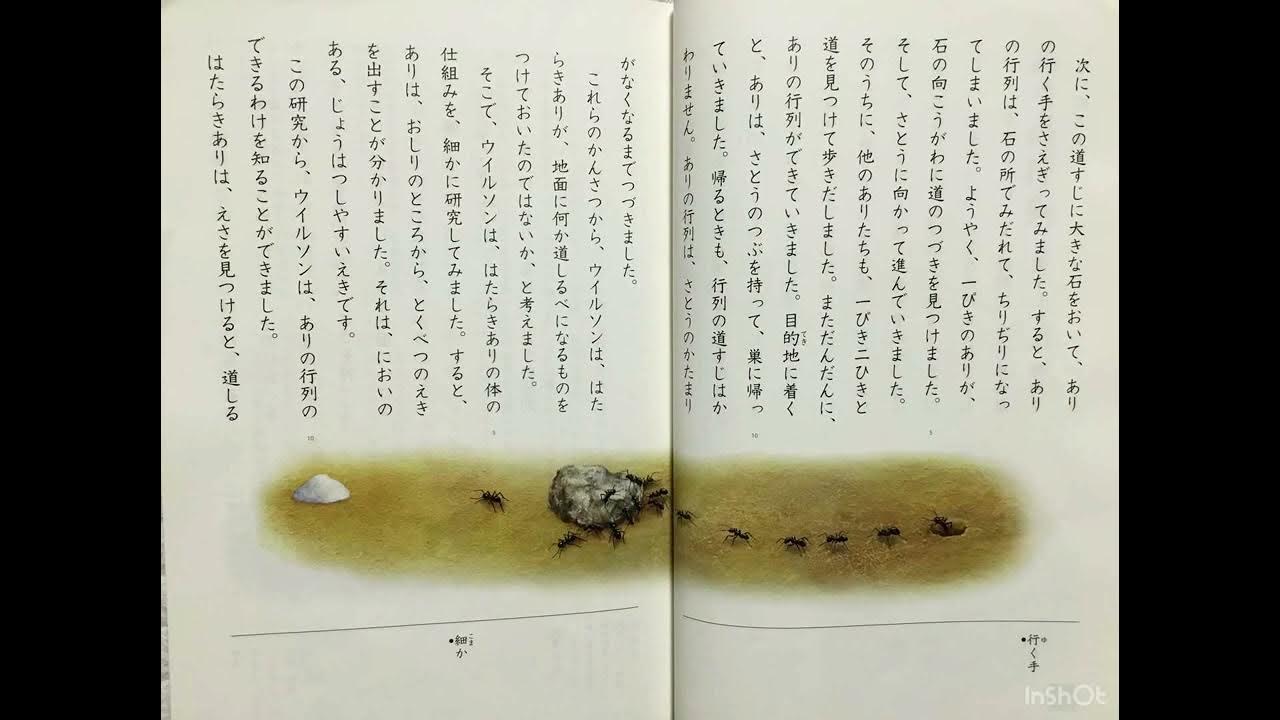 次に、この道すじに大きな石をおいて、あり
の行く手をさえぎってみました。すると、あり
の行列は、石の所でみだれて、ちりぢりになっ
てしまいました。ようやく、一ぴきのありが、
石の向こうがわに道のつづきを見つけました。
そして、さとうに向かって進んでいきました。
そのうちに、他のありたちも、一ぴき二ひきと
道を見つけて歩きだしました。まただんだんに、
ありの行列ができていきました。目的地に着く
てき
と、ありは、さとうのつぶを持って、巣に帰っ
ていきました。帰るときも、行列の道すじはか
わりません。ありの行列は、さとうのかたまり
5
10
行く手
ゆ
がなくなるまでつづきました。
これらのかんさつから、ウイルソンは、はた
らきありが、地面に何か道しるべになるものを
つけておいたのではないか、と考えました。
そこで、ウイルソンは、はたらきありの体の
仕組みを、細かに研究してみました。すると、
ありは、おしりのところから、とくべつのえき
を出すことが分かりました。それは、においの
ある、じょうはつしやすいえきです。
この研究から、ウイルソンは、ありの行列の
できるわけを知ることができました。
はたらきありは、えさを見つけると、道しる
5
10
細か
こま
InShOt